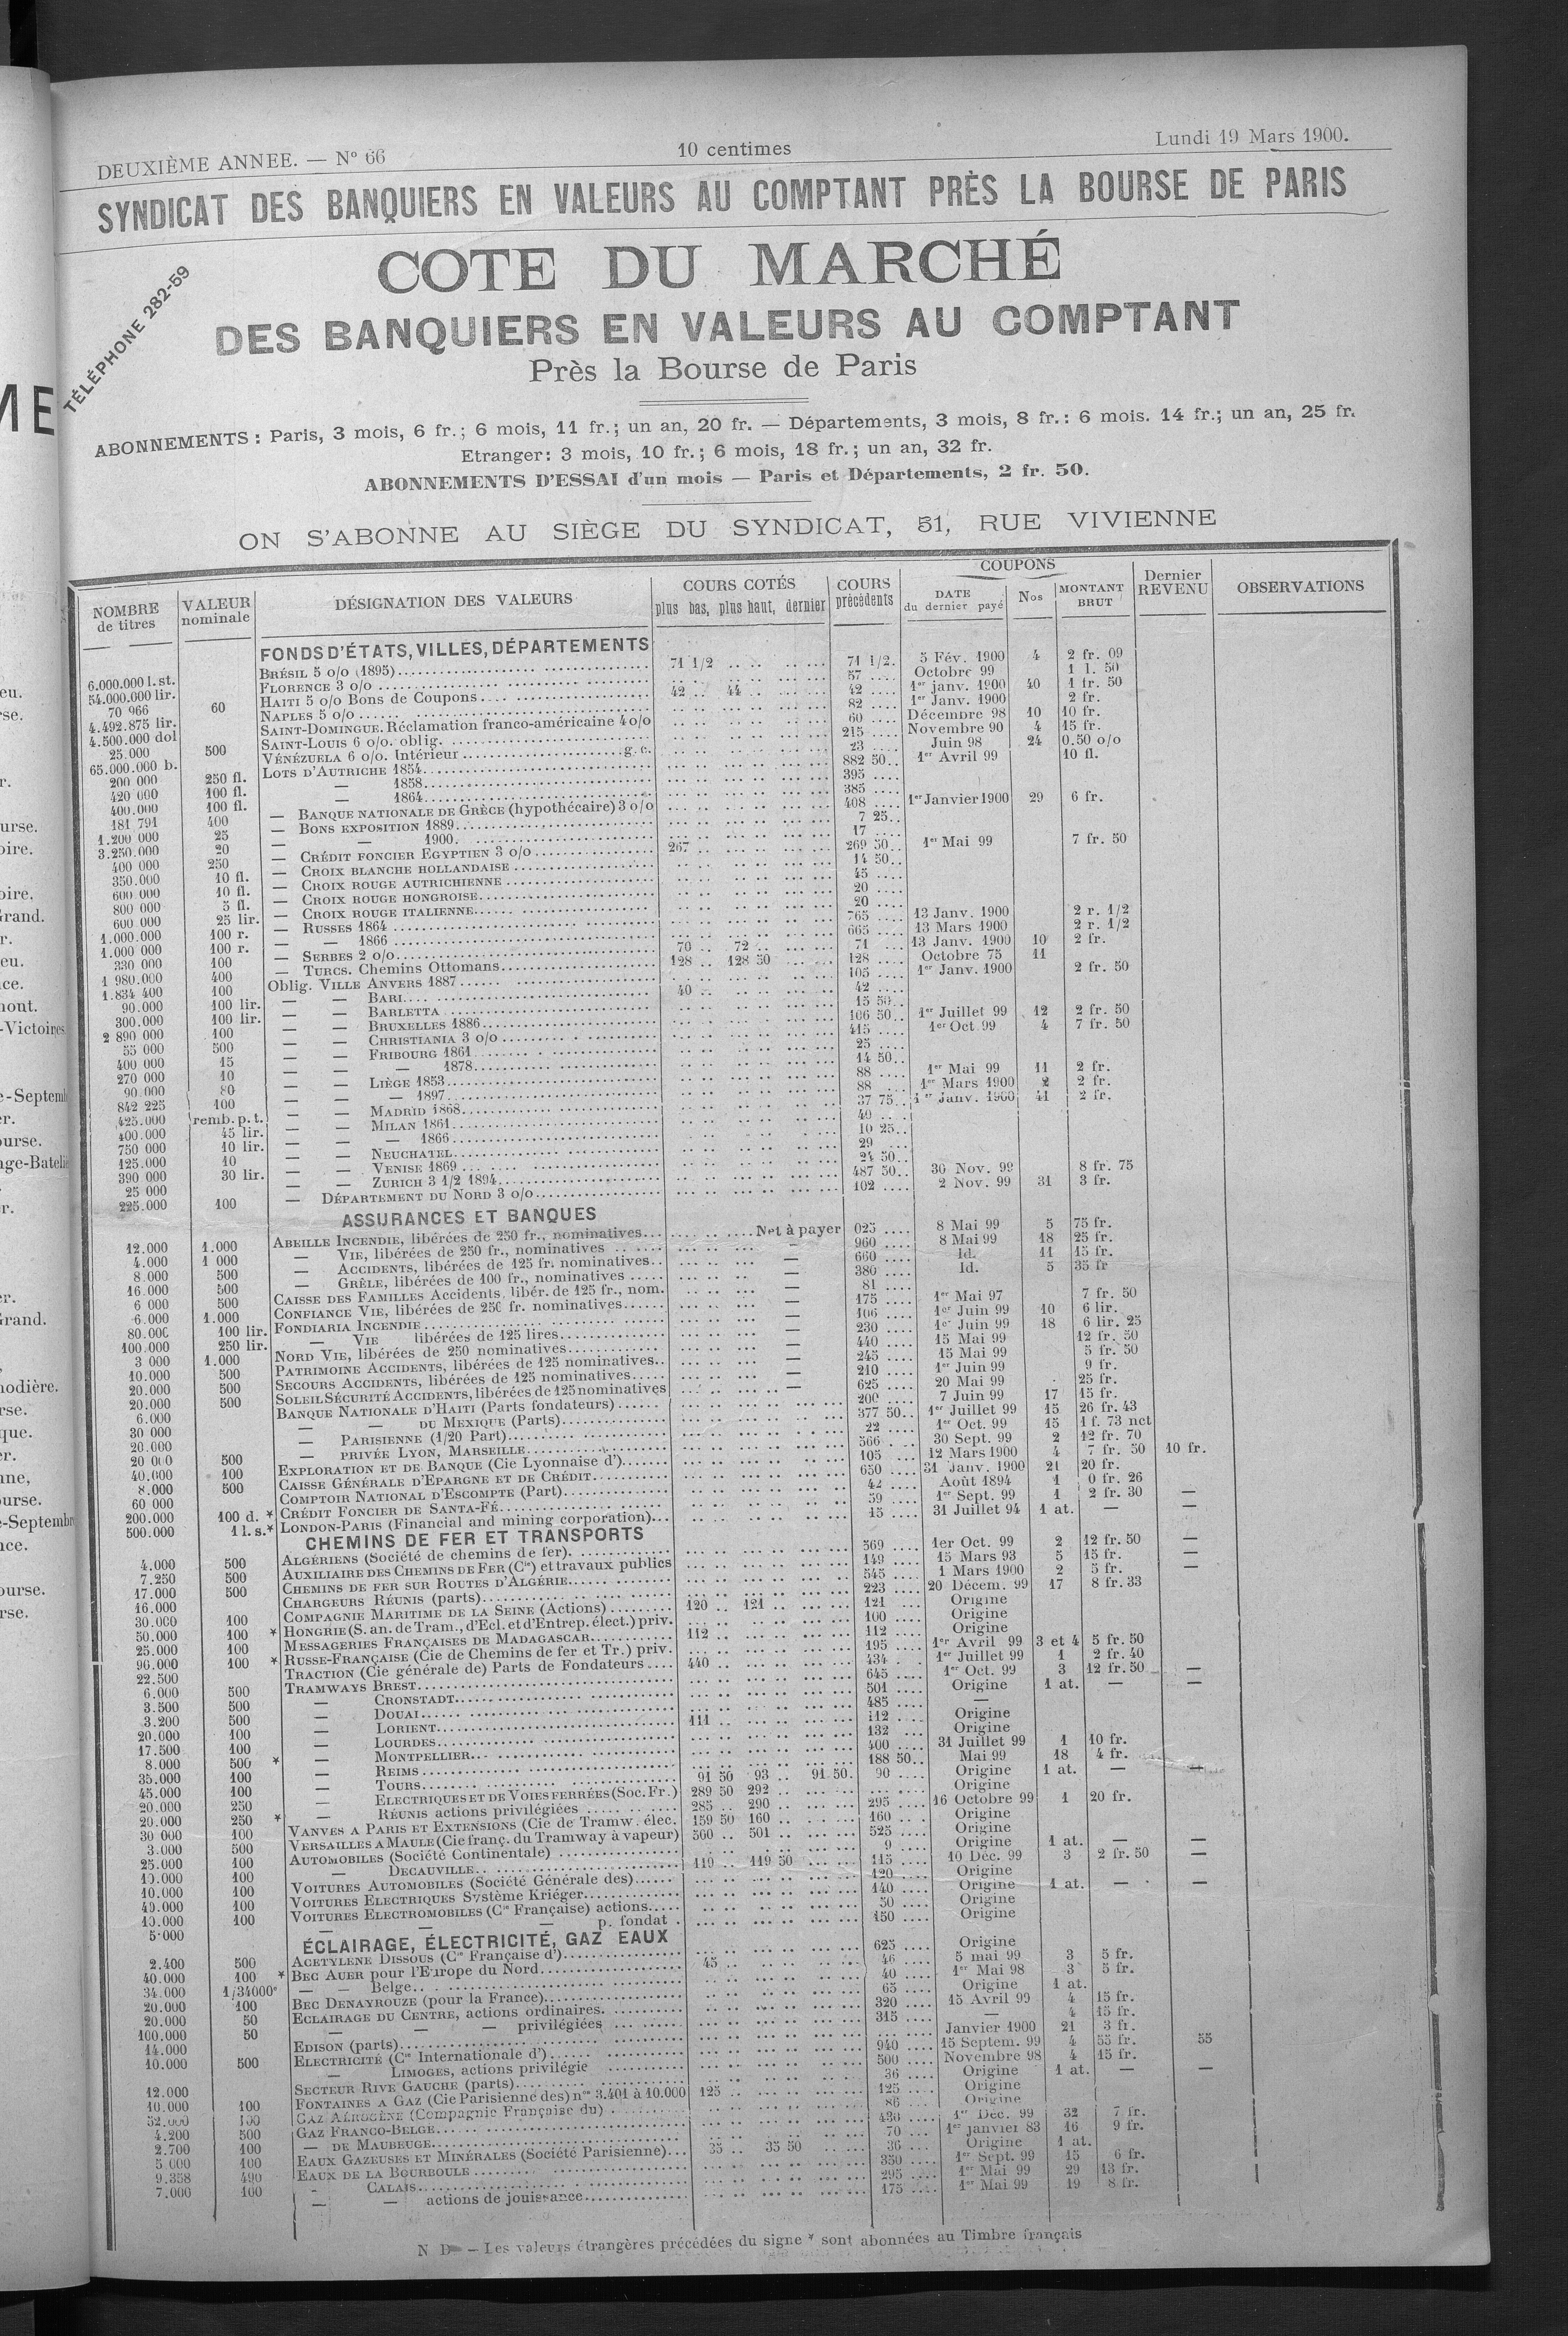 DEUXIÈME ANNEE. — N° 66
10 centimes
Lundi 19 Mars 1900.
SYNDICAT DES BANQUIERS EN VALEURS AU COMPTANT PRÈS LA BOURSE DE PARIS
TÉLÉPHONE 282-59
COTE DU MARCHÉ
DES BANQUIERS EN VALEURS AU COMPTANT
Près la Bourse de Paris
ABONNEMENTS : Paris, 3 mois, 6 fr.; 6 mois, 11 fr.; un an, 20 fr. — Départements, 3 mois, 8 fr.: 6 mois. 14 fr.; un an, 25 fr.
Etranger: 3 mois, 10 fr.; 6 mois, 18 fr.; un an, 32 fr.
ABONNEMENTS D'ESSAI d'un mois — Paris et Départements, 2 fr. 50.
ON S'ABONNE AU SIÈGE DU SYNDICAT, 51, RUE VIVIENNE
NOMBRE de titres | VALEUR nominale | DÉSIGNATION DES VALEURS | COURS COTÉS plus bas, plus haut, dernier | COURS précédents | COUPONS DATE du dernier payé | Nos | MONTANT BRUT | Dernier REVENU | OBSERVATIONS
FONDS D'ÉTATS, VILLES, DÉPARTEMENTS
6.000.000 l.st. BRÉSIL 5 o/o (1895) 71 1/2 71 1/2 5 Fév. 1900 4 2 fr. 09
54.000.000 lir. FLORENCE 3 o/o 57 Octobre 99 1 l. 50
70 966 60 HAITI 5 o/o Bons de Coupons 42 44 42 1er janv. 1900 40 1 fr. 50
4.492.875 lir. NAPLES 5 o/o 82 1er Janv. 1900 2 fr.
4.500.000 dol SAINT-DOMINGUE. Réclamation franco-américaine 4 o/o 60 Décembre 98 10 10 fr.
25.000 500 SAINT-LOUIS 6 o/o. oblig. 215 Novembre 90 4 15 fr.
65.000.000 b. VÉNÉZUELA 6 o/o. Intérieur g.c. 23 Juin 98 24 0.50 o/o
200 000 250 fl. LOTS D'AUTRICHE 1854 882 50 1er Avril 99 10 fl.
420 000 100 fl. — 1858 395
400.000 100 fl. — 1864 385
181 791 400 — BANQUE NATIONALE DE GRÈCE (hypothécaire) 3 o/o 408 1er Janvier 1900 29 6 fr.
1.200 000 25 — BONS EXPOSITION 1889 7 25
3.250.000 20 — — 1900 17
400 000 250 — CRÉDIT FONCIER EGYPTIEN 3 o/o 267 269 50 1er Mai 99 7 fr. 50
350.000 10 fl. — CROIX BLANCHE HOLLANDAISE 14 50
600 000 10 fl. — CROIX ROUGE AUTRICHIENNE 45
800 000 5 fl. — CROIX ROUGE HONGROISE 20
600 000 25 lir. — CROIX ROUGE ITALIENNE 20
1.000.000 100 r. — RUSSES 1864 765 13 Janv. 1900 2 r. 1/2
1.000 000 100 r. — — 1866 665 13 Mars 1900 2 r. 1/2
330 000 100 — SERBES 2 o/o 70 72 71 13 Janv. 1900 10 2 fr.
1 980.000 400 — TURCS. Chemins Ottomans 128 128 50 128 Octobre 75 11
1.834 400 100 Oblig. VILLE ANVERS 1887 105 1er Janv. 1900 2 fr. 50
90.000 100 lir. — — BARI 40 42
300.000 100 lir. — — BARLETTA 15 50
2 890 000 100 — — BRUXELLES 1886 106 50 1er Juillet 99 12 2 fr. 50
55 000 500 — — CHRISTIANIA 3 o/o 415 1er Oct 99 4 7 fr. 50
400 000 15 — — FRIBOURG 1861 25
270 000 10 — — — 1878 14 50
90.000 80 — — LIÈGE 1853 88 1er Mai 99 11 2 fr.
842 225 100 — — — 1897 88 1er Mars 1900 2 2 fr.
425.000 remb. p. t. — — MADRID 1868 37 75 1er Janv. 1900 41 2 fr.
400.000 45 lir. — — MILAN 1861 40
750 000 10 lir. — — — 1866 10 25
125.000 10 — — NEUCHATEL 29
390 000 30 lir. — — VENISE 1869 24 50
25 000 — — ZURICH 3 1/2 1894 487 50 30 Nov. 99 8 fr. 75
225.000 100 — DÉPARTEMENT DU NORD 3 o/o 102 2 Nov. 99 31 3 fr.
ASSURANCES ET BANQUES
12.000 1.000 ABEILLE INCENDIE, libérées de 250 fr., nominatives Net à payer 025 8 Mai 99 5 75 fr.
4.000 1 000 — VIE, libérées de 250 fr., nominatives — 960 8 Mai 99 18 25 fr.
8.000 500 — ACCIDENTS, libérées de 125 fr. nominatives — 660 Id. 11 15 fr.
16.000 500 — GRÊLE, libérées de 100 fr., nominatives — 380 Id. 5 35 fr
6 000 500 CAISSE DES FAMILLES Accidents, libér. de 125 fr., nom. — 81
6.000 1.000 CONFIANCE VIE, libérées de 250 fr. nominatives — 175 1er Mai 97 7 fr. 50
80.000 100 lir. FONDIARIA INCENDIE — 106 1er Juin 99 10 6 lir.
100.000 250 lir. — VIE libérées de 125 lires — 230 1er Juin 99 18 6 lir. 25
3 000 1.000 NORD VIE, libérées de 250 nominatives — 440 15 Mai 99 12 fr. 50
10.000 500 PATRIMOINE ACCIDENTS, libérées de 125 nominatives — 245 15 Mai 99 5 fr. 50
20.000 500 SECOURS ACCIDENTS, libérées de 125 nominatives — 210 1er Juin 99 9 fr.
20.000 500 SOLEIL SÉCURITÉ ACCIDENTS, libérées de 125 nominatives — 625 20 Mai 99 25 fr.
6.000 BANQUE NATIONALE D'HAITI (Parts fondateurs) 200 7 Juin 99 17 15 fr.
30 000 — DU MEXIQUE (Parts) 377 50 1er Juillet 99 15 26 fr. 43
20.000 — PARISIENNE (1/20 Part) 22 1er Oct. 99 15 1 f. 73 net
20 000 500 — PRIVÉE LYON, MARSEILLE 566 30 Sept. 99 2 12 fr. 70
40.000 100 EXPLORATION ET DE BANQUE (Cie Lyonnaise d') 105 12 Mars 1900 4 7 fr. 50 10 fr.
8.000 500 CAISSE GÉNÉRALE D'EPARGNE ET DE CRÉDIT 650 31 Janv. 1900 21 20 fr.
60 000 COMPTOIR NATIONAL D'ESCOMPTE (Part) 42 Août 1894 1 0 fr. 26
200.000 100 d. * CRÉDIT FONCIER DE SANTA-FÉ 59 1er Sept. 99 1 2 fr. 30 —
500.000 1 l. s. * LONDON-PARIS (Financial and mining corporation) 15 31 Juillet 94 1 at. — —
CHEMINS DE FER ET TRANSPORTS
4.000 500 ALGÉRIENS (Société de chemins de fer) 569 1er Oct. 99 2 12 fr. 50 —
7.250 500 AUXILIAIRE DES CHEMINS DE FER (Cie) et travaux publics 149 15 Mars 93 5 15 fr. —
17.000 500 CHEMINS DE FER SUR ROUTES D'ALGÉRIE 545 1 Mars 1900 2 5 fr. —
16.000 CHARGEURS RÉUNIS (parts) 223 20 Décem. 99 17 8 fr. 33
30.000 100 COMPAGNIE MARITIME DE LA SEINE (Actions) 120 121 121 Origine
50.000 100 * HONGRIE (S. an. de Tram., d'Ecl. et d'Entrep. élect.) priv. 100 Origine
25.000 100 MESSAGERIES FRANÇAISES DE MADAGASCAR 112 112 Origine
90.000 100 * RUSSE-FRANÇAISE (Cie de Chemins de fer et Tr.) priv. 195 1er Avril 99 3 et 4 5 fr. 50
22.500 TRACTION (Cie générale de) Parts de Fondateurs 440 434 1er Juillet 99 1 2 fr. 40
6.000 500 TRAMWAYS BREST 645 1er Oct. 99 3 12 fr. 50 —
3.500 500 — CRONSTADT 501 Origine 1 at. — —
3.200 500 — DOUAI 485 —
20.000 100 — LORIENT 111 112 Origine
17.500 100 — LOURDES 132 Origine
8.000 500 * — MONTPELLIER 400 31 Juillet 99 1 10 fr.
35.000 100 — REIMS 188 50 Mai 99 18 4 fr.
45.000 100 — TOURS 91 50 93 91 50 90 Origine 1 at. — —
20.000 250 — ELECTRIQUES ET DE VOIES FERRÉES (Soc. Fr.) 289 50 292 Origine
20.000 250 * — RÉUNIS actions privilégiées 285 290 295 16 Octobre 99 1 20 fr.
30 000 100 VANVES A PARIS ET EXTENSIONS (Cie de Tramw. élec. 159 50 160 160 Origine
3.000 500 VERSAILLES A MAULE (Cie franç. du Tramway à vapeur) 500 501 525 Origine
25.000 100 AUTOMOBILES (Société Continentale) 9 Origine 1 at. — —
10.000 100 — DECAUVILLE 119 119 50 115 10 Déc. 99 3 2 fr. 50 —
10.000 100 VOITURES AUTOMOBILES (Société Générale des) 120 Origine
40.000 100 VOITURES ELECTRIQUES Système Kriéger 140 Origine 1 at. — —
10.000 100 VOITURES ELECTROMOBILES (Cie Française) actions 50 Origine
5.000 — — — p. fondat. 150 Origine
ÉCLAIRAGE, ÉLECTRICITÉ, GAZ EAUX
2.400 500 ACETYLENE DISSOUS (Cie Française d') 625 Origine
40.000 100 * BEC AUER pour l'Europe du Nord 45 46 5 mai 99 3 5 fr.
34.000 1/34000e — — Belge 40 1er Mai 98 3 5 fr.
20.000 100 BEC DENAYROUZE (pour la France) 65 Origine 1 at.
20.000 50 ECLAIRAGE DU CENTRE, actions ordinaires 320 15 Avril 99 4 15 fr.
100.000 50 — — — privilégiées 315 — 4 15 fr.
14.000 EDISON (parts) Janvier 1900 21 3 fr.
10.000 500 ELECTRICITÉ (Cie Internationale d') 940 15 Septem. 99 4 55 fr. 55
— LIMOGES, actions privilégie 500 Novembre 98 4 15 fr.
12.000 SECTEUR RIVE GAUCHE (parts) 36 Origine 1 at. — —
10.000 100 FONTAINES A GAZ (Cie Parisienne des) nos 3.401 à 10.000 125 125 Origine
52.000 100 GAZ AÉROGÈNE (Compagnie Française du) 86 Origine
4.200 500 GAZ FRANCO-BELGE 430 1er Déc. 99 32 7 fr.
2.700 100 — DE MAUBEUGE 70 1er janvier 83 16 9 fr.
5 000 100 EAUX GAZEUSES ET MINÉRALES (Société Parisienne) 35 35 50 36 Origine 1 at.
9.358 490 EAUX DE LA BOURBOULE 350 1er Sept. 99 15 6 fr.
7.000 100 - CALAIS 295 1er Mai 99 29 13 fr.
— — actions de jouissance 175 1er Mai 99 19 8 fr.
— Les valeurs étrangères précédées du signe * sont abonnées au Timbre français